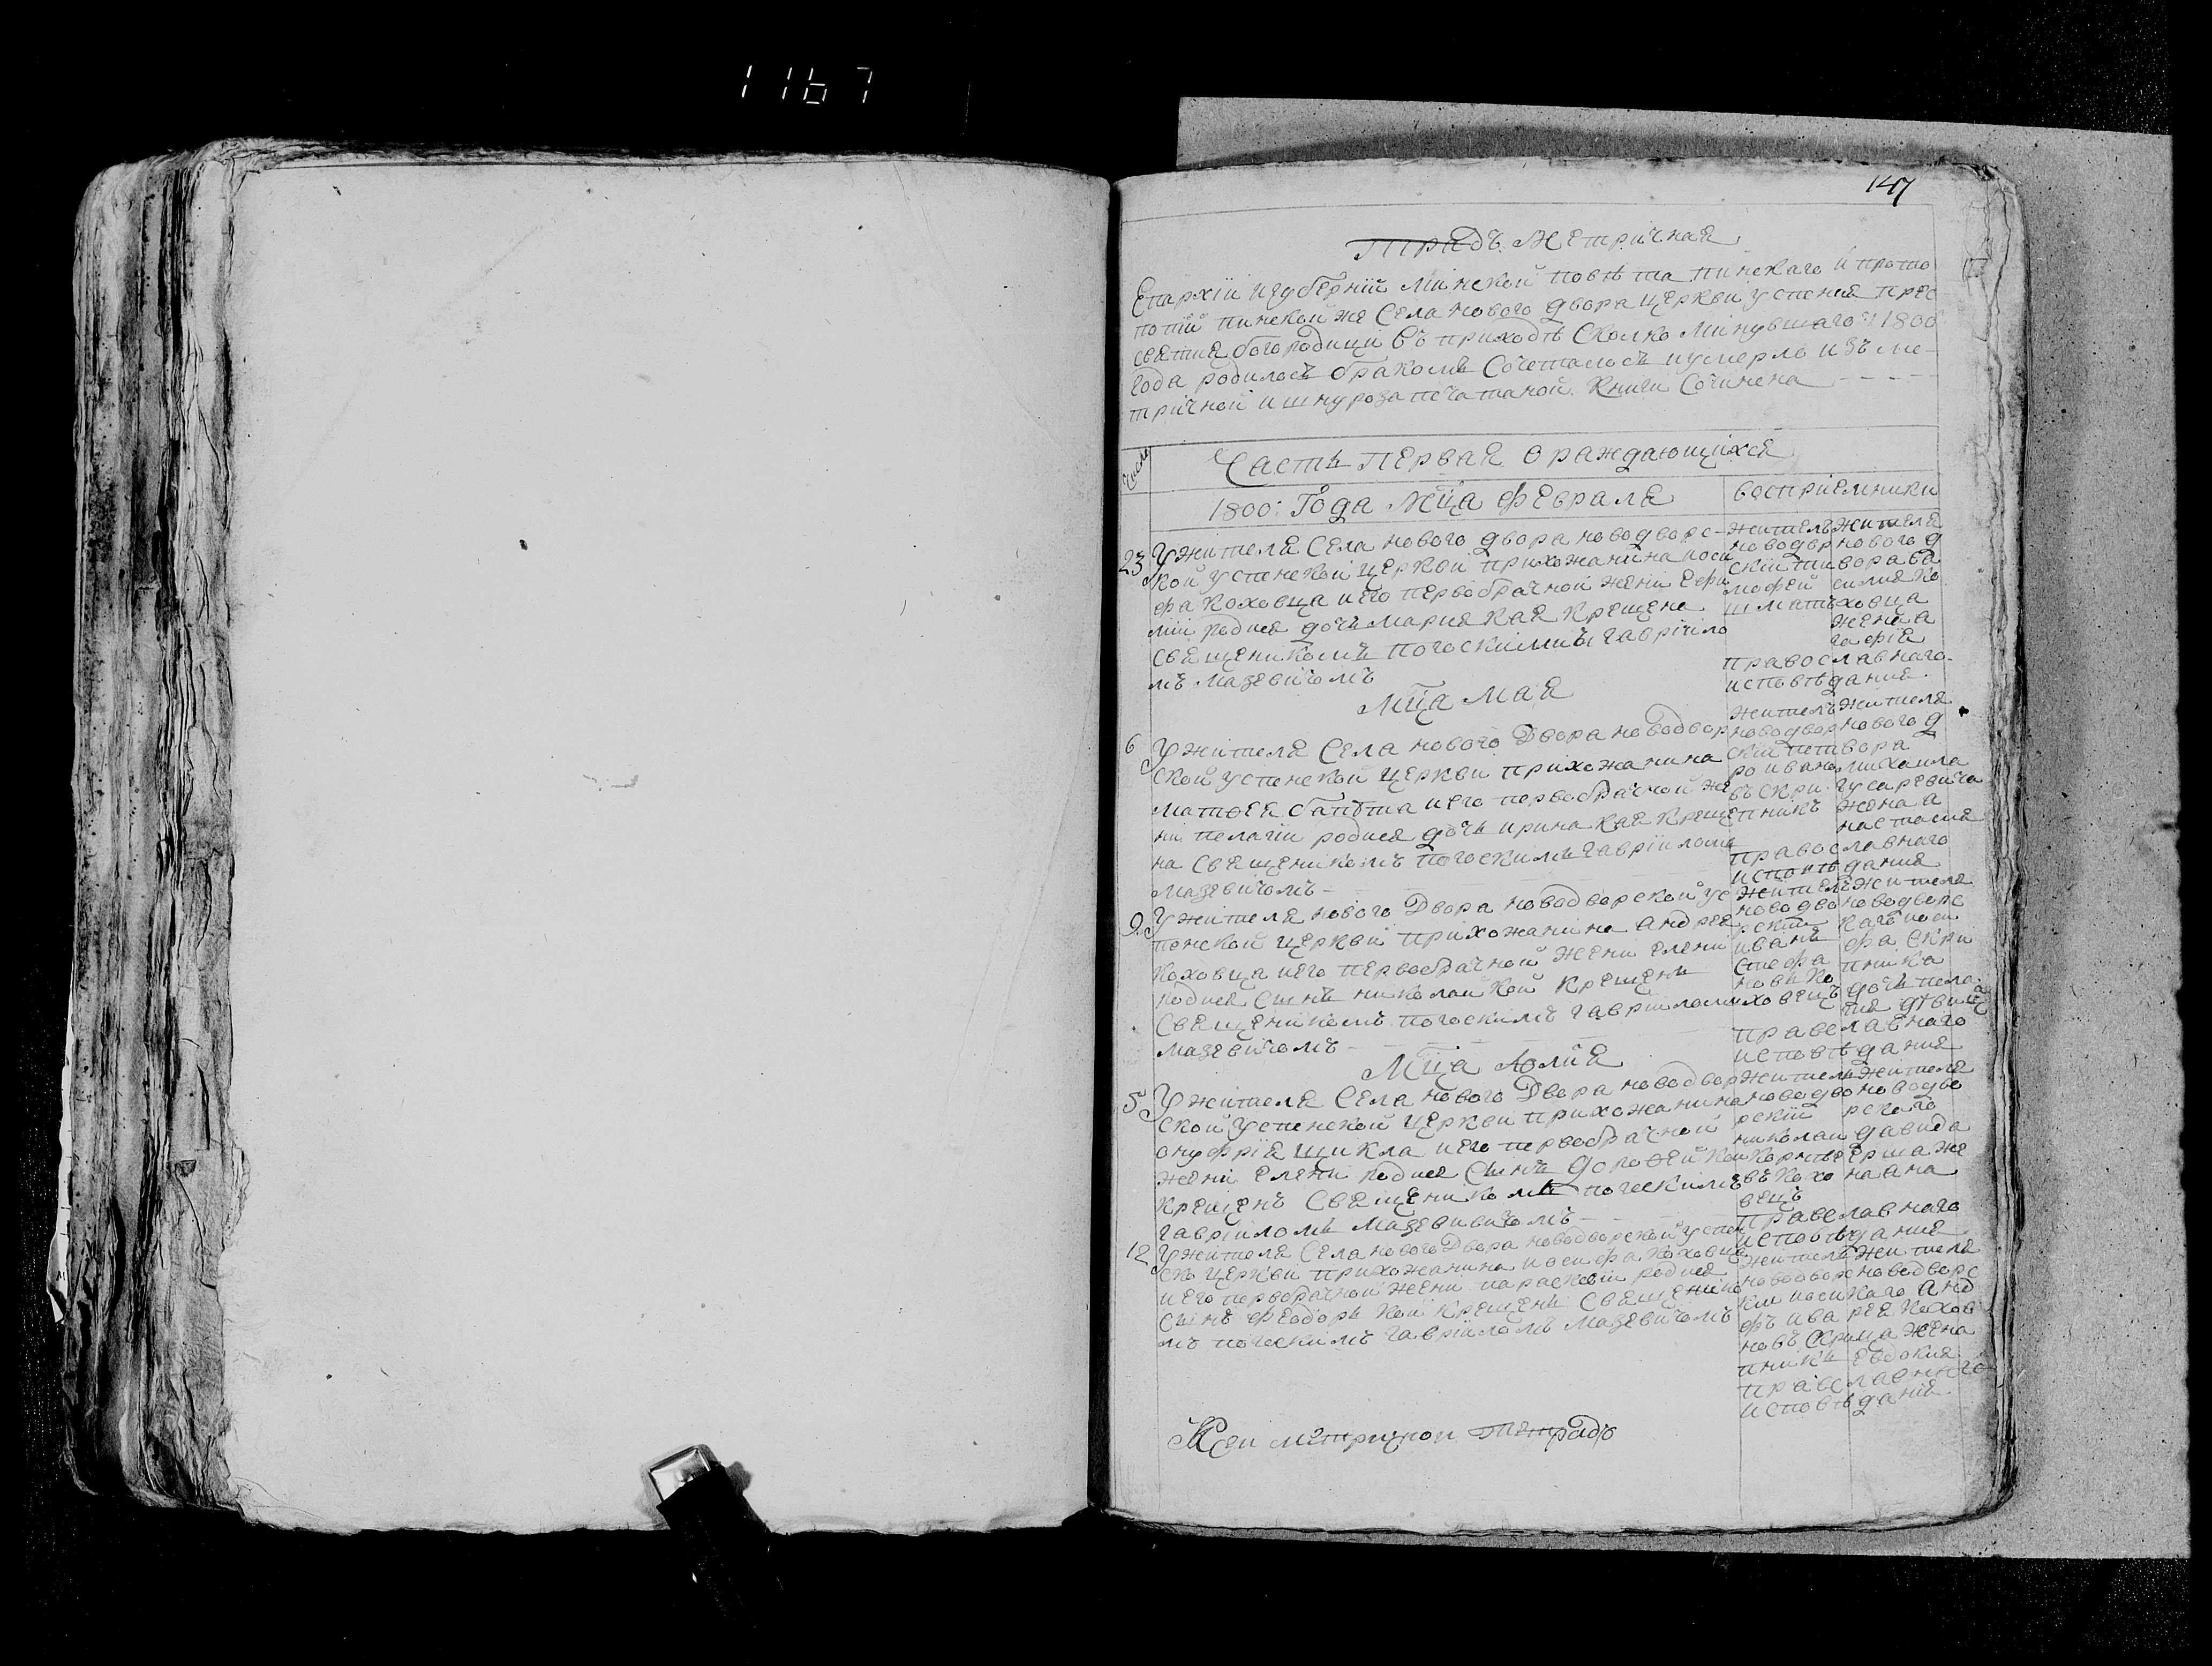 1167
147
Тетрадъ Метричная
Епархіи и губерніи Минской повѣта пинскаго и прото
попіи пинской же Села нового двора церкви успения прес
святия богородици въ приходѣ Сколко минувшаго 1800
года родилось бракомъ Сочеталось и умерло изъ ме-
тричной и шнурозапечатаной Книги Сочинена
Число
Часть первая о раждающихся
1800: Года Мца февраля
восприемники
23 У жителя Села нового двора новодворс-
кой успенской церкви прихожанина иоси
фа Коховца и его первобрачной жени Ефи
мии родися дочь мария кая крещена
Священикомъ погоскимъ гавріило
мъ мазевичомъ
житель новодвр скій тимофей шматъ
жителя нового двора василия Коховца жена агафія
православнаго
исповѣдания
Мца мая
6 У жителя Села нового Двора новодвор
ской успенской церкви прихожанина
матѳея и его первобрачной же
ни пелагии родися дочь ирина кая креще
на Священикомъ погоскимъ гавріиломъ
мазевичомъ
житель новодвор скій петро ивановъ скрипникъ
жителя нового двора михаила гусаревича жена анастасия
православнаго
исповѣдания
9 У жителя нового Двора новодворской ус
пенской церкви прихожанина андрея
коховца и его первобрачной жени елени
родися Синъ николай кой крещенъ
Священикомъ погоскимъ гавріиломъ
мазевичомъ
житель новодворскій иванъ стефановъ коховецъ
жителя новодворскаго иосифа скрипника дочь пелагия двица
православнаго
исповѣдания
Мца Юлия
5 У жителя Села нового Двора новодвор
ской успенской церкви прихожанина
онуфрія щикла и его первобрачной
жени елени родися Синъ дороѳей кои
крещенъ Священикомъ погоскимъ
гавріиломъ мазевивичомъ
житель новодворскій николаи корнѣевъ коховецъ
жителя новодворскаго давида ерша жена ана
православнаго
исповѣдания
12 У жителя Села нового Двора новодворской успен
ско церкви прихожанина иосифа коховца
и его перворачной жени параскевии родися
Синъ феодоръ кои крещенъ Священико
мъ погоскимъ гавріиломъ мазевичомъ
житель новодворскии иосифъ ивановъ скрипникъ
жителя новодворскаго андрея коховца жена евдокия
православнаго
исповѣдания
К сеи метричной тетрадѣ